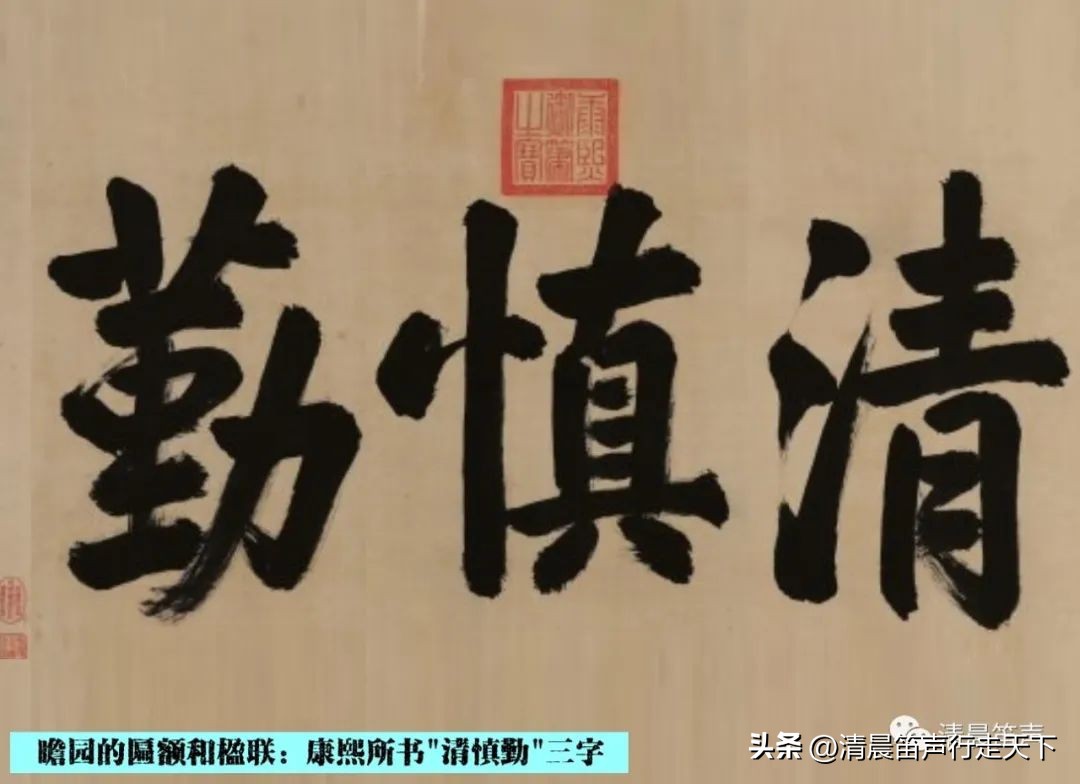 康熙御筆之寶
清慎勤
清晨笛声
头条 @清晨笛声行走天下
瞻园的匾额和楹联：康熙所书"清慎勤"三字